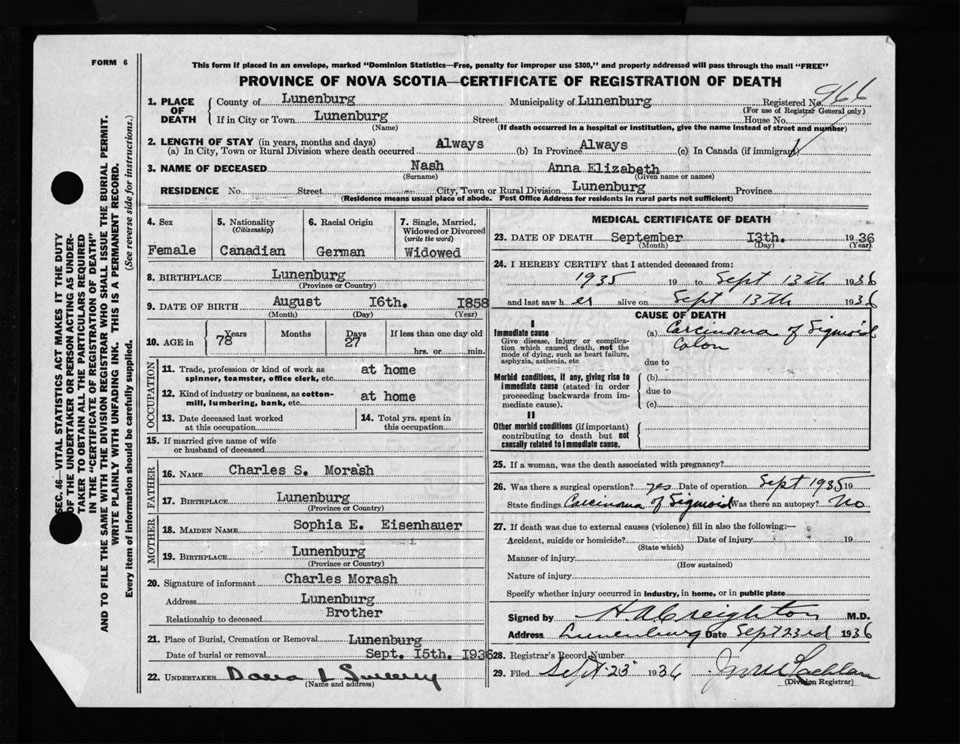 FORM 6
This form if placed in an envelope, marked "Dominion Statistics—Free, penalty for improper use $300," and properly addressed will pass through the mail "FREE"
PROVINCE OF NOVA SCOTIA—CERTIFICATE OF REGISTRATION OF DEATH
SEC. 46—VITAL STATISTICS ACT MAKES IT THE DUTY
OF THE UNDERTAKER OR PERSON ACTING AS UNDER-
TAKER TO OBTAIN ALL THE PARTICULARS REQUIRED
IN THE "CERTIFICATE OF REGISTRATION OF DEATH"
AND TO FILE THE SAME WITH THE DIVISION REGISTRAR WHO SHALL ISSUE THE BURIAL PERMIT.
WRITE PLAINLY WITH UNFADING INK. THIS IS A PERMANENT RECORD.
Every item of information should be carefully supplied. (See reverse side for instructions.)
1. PLACE OF DEATH County of Lunenburg Municipality of Lunenburg Registered No. 966
(For use of Registrar General only)
If in City or Town Lunenburg Street House No.
(Name) (If death occurred in a hospital or institution, give the name instead of street and number)
2. LENGTH OF STAY (in years, months and days)
(a) In City, Town or Rural Division where death occurred Always (b) In Province Always (c) In Canada (if immigrant)
3. NAME OF DECEASED Nash Anna Elizabeth
(Surname) (Given name or names)
RESIDENCE No. Street City, Town or Rural Division Lunenburg Province
(Residence means usual place of abode. Post Office Address for residents in rural parts not sufficient)
4. Sex
Female
5. Nationality
(Citizenship)
Canadian
6. Racial Origin
German
7. Single, Married,
Widowed or Divorced
(write the word)
Widowed
8. BIRTHPLACE Lunenburg
(Province or Country)
9. DATE OF BIRTH August 16th. 1858
(Month) (Day) (Year)
10. AGE in Years 78 Months Days 27 If less than one day old
hrs. or min.
OCCUPATION
11. Trade, profession or kind of work as
spinner, teamster, office clerk, etc. at home
12. Kind of industry or business, as cotton-
mill, lumbering, bank, etc. at home
13. Date deceased last worked
at this occupation
14. Total yrs. spent in
this occupation
15. If married give name of wife
or husband of deceased
FATHER
16. NAME Charles S. Morash
17. BIRTHPLACE Lunenburg
(Province or Country)
MOTHER
18. MAIDEN NAME Sophia E. Eisenhauer
19. BIRTHPLACE Lunenburg
(Province or Country)
20. Signature of informant Charles Morash
Address Lunenburg
Relationship to deceased Brother
21. Place of Burial, Cremation or Removal Lunenburg
Date of burial or removal Sept. 15th. 1936
22. UNDERTAKER
(Name and address)
MEDICAL CERTIFICATE OF DEATH
23. DATE OF DEATH September 13th. 1936
(Month) (Day) (Year)
24. I HEREBY CERTIFY that I attended deceased from:
1935 19 to Sept 13th 1936
and last saw her alive on Sept 13th 1936
CAUSE OF DEATH
I
Immediate cause
Give disease, injury or complica-
tion which caused death, not the
mode of dying, such as heart failure,
asphyxia, asthenia, etc
(a) Carcinoma of Sigmoid
Colon
due to
Morbid conditions, if any, giving rise to
immediate cause (stated in order
proceeding backwards from im-
mediate cause).
(b)
due to
(c)
II
Other morbid conditions (if important)
contributing to death but not
causally related to immediate cause.
25. If a woman, was the death associated with pregnancy?
26. Was there a surgical operation? yes Date of operation Sept 1935 19
State findings Carcinoma of Sigmoid Was there an autopsy? No
27. If death was due to external causes (violence) fill in also the following:—
Accident, suicide or homicide? Date of injury 19
(State which)
Manner of injury
(How sustained)
Nature of injury
Specify whether injury occurred in industry, in home, or in public place
Signed by H A Creighton M.D.
Address Lunenburg Date Sept 23rd 1936
28. Registrar's Record Number
29. Filed Sept 23 1936
(Division Registrar)